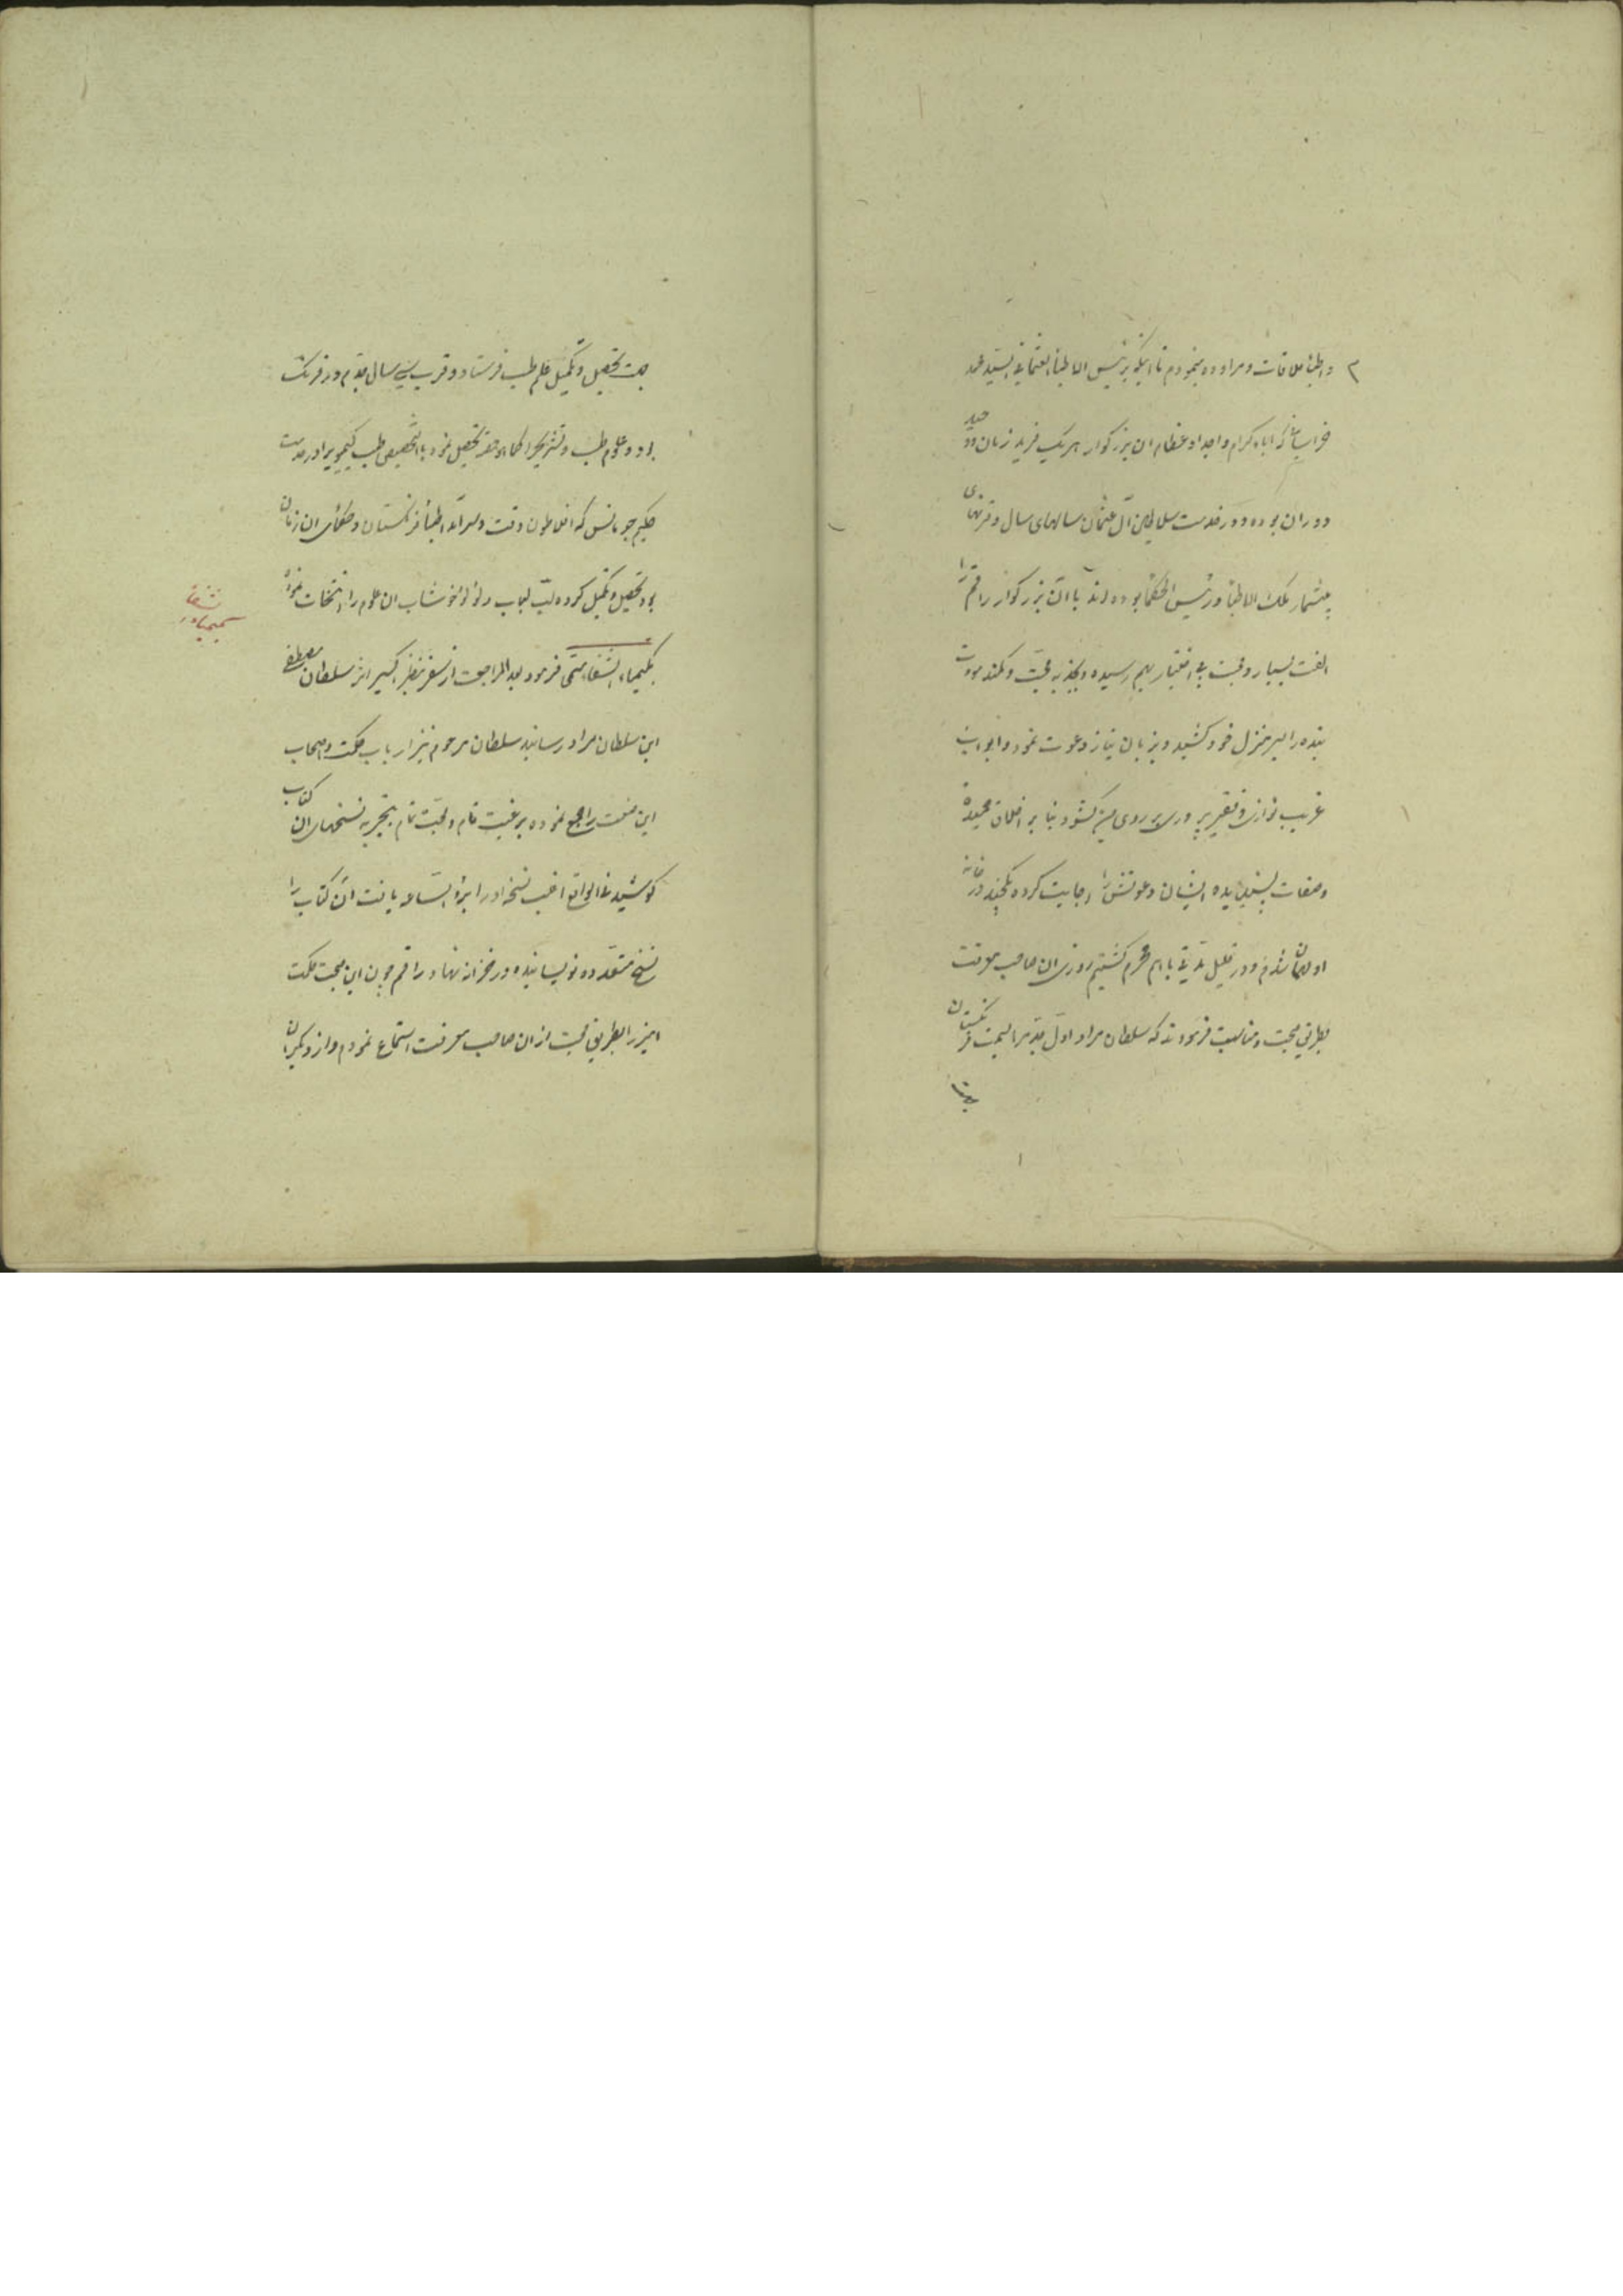 واطبا ملاقات ومراوده مینمودم تا اینکه برئیس الاطباء العثمانی السید محمد
خراسانی که اباء کرام واجداد عظام ان بزرکوار هر یک فرید زمان ووحید
دوران بوده ودر خدمت سلاطین آل عثمان سالهای سال وقرنهای
بیشمار ملک الاطبا ورئیس الحکما بوده اند با ان بزرکوار راقم را
الفت بسیار ومحبت بی اختیار بهم رسیده وبجذبه محبت وکمند مودت
بنده را بسر منزل خود کشید وبزبان نیاز دعوت نمود وابواب
غریب نوازی وفقیر پروری بر روی من کشود بنا بر اخلاق حمیده
وصفات پسندیده ایشان دعوتش را اجابت کرده یکچند در خانه
او مهمان شدم ودر قلیل مدتی با هم محرم کشتیم روزی ان صاحب معرفت
بطریق محبت ومناسبت فرمودند که سلطان مراد اول جد مرا بسمت فرنکستان
بجهت
بجهت تحصیل وتکمیل علم طب فرستاد وقریب سی سال جدم در فرنک
بود وعلوم طب وتشریح را کما هو حقه تحصیل نمود بالتخصیص طب کیمیویرا در خدمت
حکیم جرمانس که افلاطون وقت وسرآمد اطباء فرنکستان وحکمای ان زمان
بود تحصیل وتکمیل کرده لب لباب ولؤلؤ خوشاب ان علوم را انتخاب نموده
بکیمیاء الشفا مسمی فرمود بعد المراجعت از سفر بنظر اکسیر اثر سلطان مصطفی
ابن سلطان مراد رسانید سلطان مرحوم نیز ارباب حکمت واصحاب
این صنعت را جمع نموده برغبت تام ومحبت تمام بتجربه نسخهای ان کتاب
کوشید فی الواقع اغلب نسخه او را برء الساعه یافت ان کتاب را
نسخ متعدده نویسانیده در خزانه نهاد راقم چون این صحبت حکمت
امیز را بطریق محبت از ان صاحب معرفت استماع نمودم واز دیکران